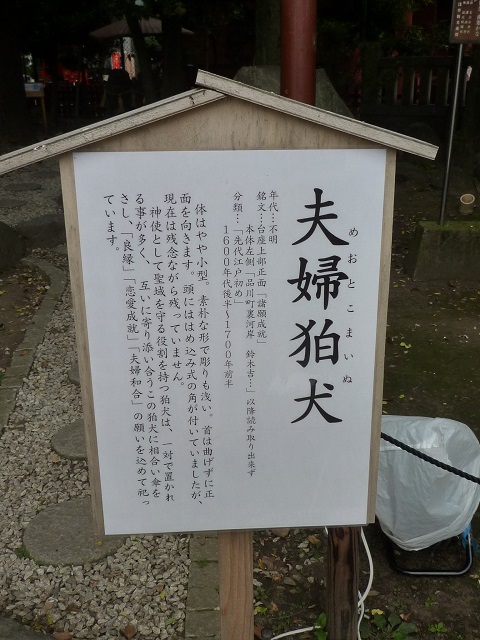 夫婦狛犬
めおとこまいぬ
年代…不明
銘文…台座上部正面「諸願成就」
本体左側「品川町裏河岸　鈴木吉…」以降読み取り出来ず
分類…「先代江戸初め」
1600年代後半〜1700年前半
体はやや小型。素朴な形で彫りも浅い。首は曲げずに正
面を向きます。頭にははめ込み式の角が付いていましたが、
現在は残念ながら残っていません。
神使として聖域を守る役割を持つ狛犬は、一対で置かれ
る事が多く、互いに寄り添い合うこの狛犬に相合い傘を
さし、「良縁」「恋愛成就」「夫婦和合」の願いを込めて祀っ
ています。